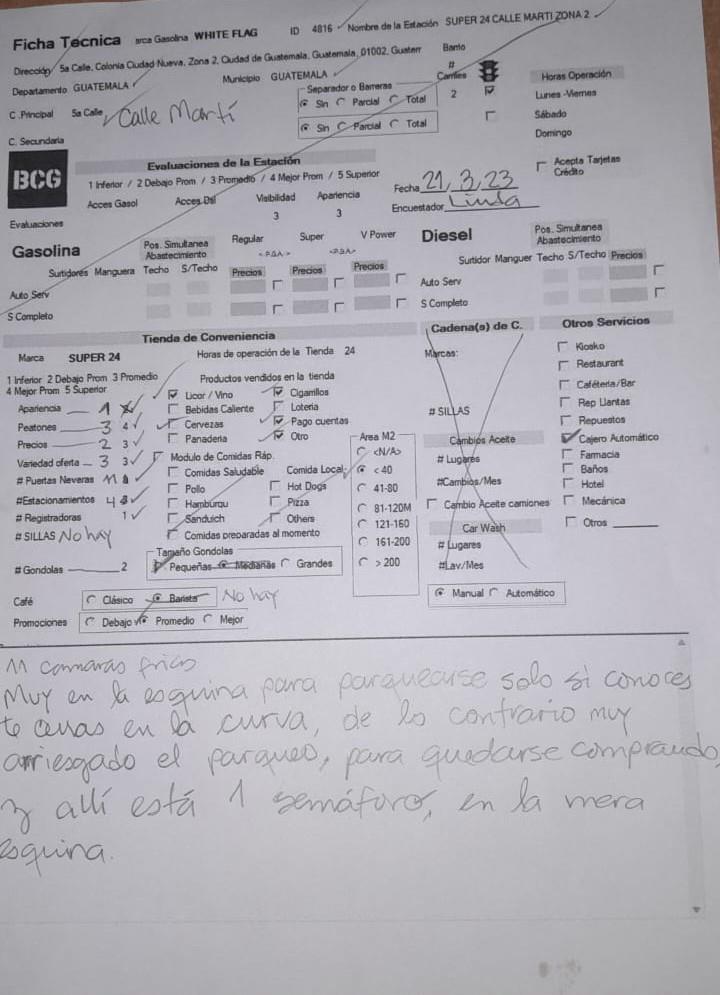 Ficha Tecnica arca Gasolina WHITE FLAG ID 4816 Nombre de la Estación SUPER 24 CALLE MARTI ZONA 2
Dirección 5a Calle, Colonia Ciudad Nueva, Zona 2, Ciudad de Guatemala, Guatemala, 01002, Guatem Barrio
Departamento GUATEMALA Municipio GUATEMALA # Carriles Horas Operación
C .Principal 5a Calle Calle Martí Separador o Barreras Sin Parcial Total 2 Lunes -Viernes
C. Secundaria Sin Parcial Total Sábado
Domingo
BCG Evaluaciones de la Estación
1 Inferior / 2 Debajo Prom / 3 Promedio / 4 Mejor Prom / 5 Superior Fecha 21, 3, 23 Acepta Tarjetas Crédito
Acces Gasol Acces Dsl Visibilidad Apariencia Encuestador Linda
Evaluaciones 3 3
Gasolina Pos. Simultanea Abastecimiento Regular Super V Power Diesel Pos. Simultanea Abastecimiento
Surtidores Manguera Techo S/Techo Precios Precios Precios Surtidor Manguer Techo S/Techo Precios
Auto Serv Auto Serv
S Completo S Completo
Tienda de Conveniencia Cadena(s) de C. Otros Servicios
Marca SUPER 24 Horas de operación de la Tienda 24 Marcas: Kiosko
1 Inferior 2 Debajo Prom 3 Promedio Productos vendidos en la tienda Restaurant
4 Mejor Prom 5 Superior Licor / Vino Cigarrillos Cafétería/Bar
Apariencia 1 Bebidas Caliente Loteria # SILLAS Rep Llantas
Peatones 3 4 Cervezas Pago cuentas Repuestos
Precios 2 3 Panaderia Otro Area M2 Cambios Aceite Cajero Automático
Variedad oferta 3 3 Modulo de Comidas Ráp. <N/A> # Lugares Farmacia
# Puertas Neveras 11 Comidas Saludable Comida Local: < 40 Baños
#Estacionamientos 4 Pollo Hot Dogs 41-80 #Cambios/Mes Hotel
# Registradoras 1 Hamburgu Pizza 81-120M Cambio Aceite camiones Mecánica
# SILLAS No hay Sanduich Others 121-160 Car Wash Otros
Comidas preparadas al momento 161-200 # Lugares
# Gondolas 2 Tamaño Gondolas Pequeñas Medianas Grandes > 200 #Lav/Mes
Café Clásico Barista No hay Manual Automático
Promociones Debajo Promedio Mejor
11 camaras frias
Muy en la esquina para parquearse solo si conoces
te en la curva, de lo contrario muy
arriesgado el parqueo, para quedarse comprando,
y allí está 1 semáforo, en la mera
esquina.